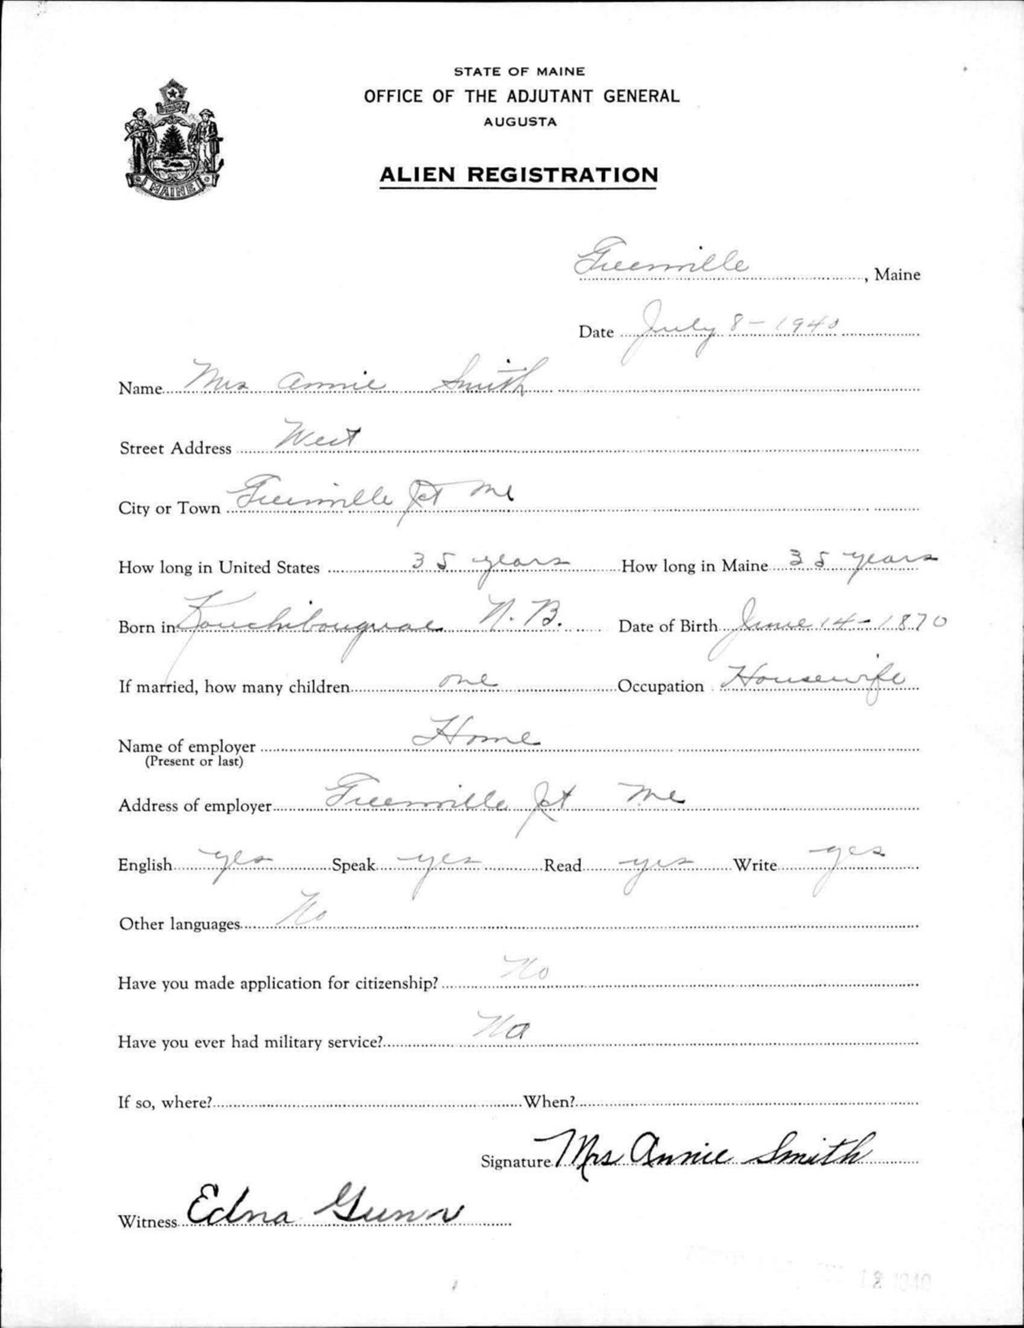 STATE OF MAINE
OFFICE OF THE ADJUTANT GENERAL
AUGUSTA
ALIEN REGISTRATION
MAINE
Greenville, Maine
Date July 8 - 1940
Name Mrs Annie Smith
Street Address West
City or Town Greenville Jct Me
How long in United States 35 years How long in Maine 35 years
Born in Kouchibouguac N. B. Date of Birth June 14 - 1870
If married, how many children one Occupation Housewife
Name of employer Home
(Present or last)
Address of employer Greenville Jct Me
English yes Speak yes Read yes Write yes
Other languages No
Have you made application for citizenship? No
Have you ever had military service? No
If so, where? When?
Signature Mrs Annie Smith
Witness Edna Gunn